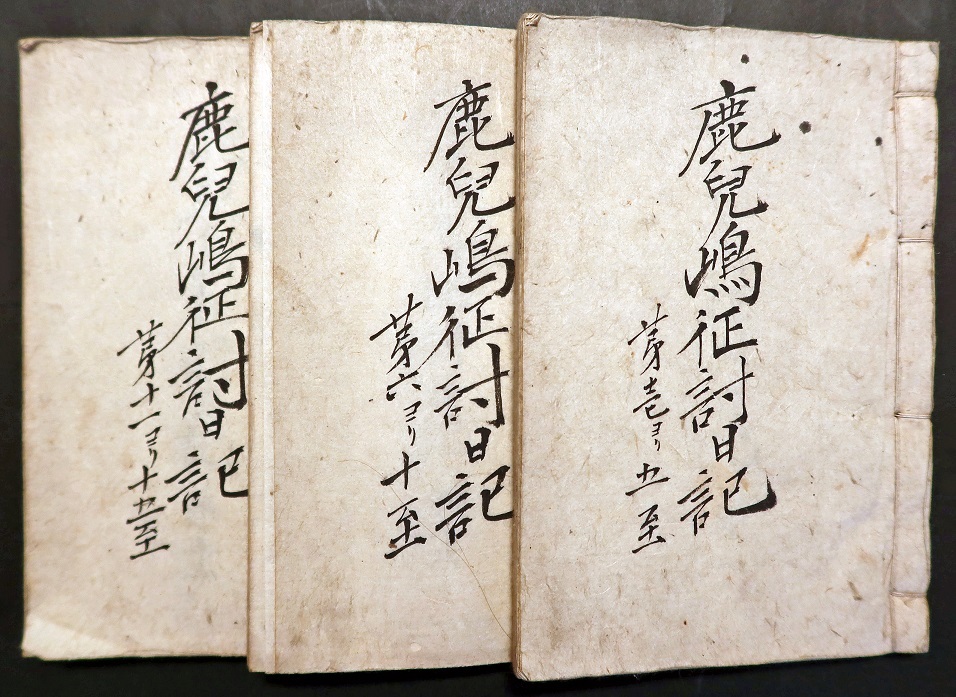 鹿兒嶋征討日記
第壱ヨリ五至
鹿兒嶋征討日記
第六ヨリ十至
鹿兒嶋征討日記
第十一ヨリ十五至